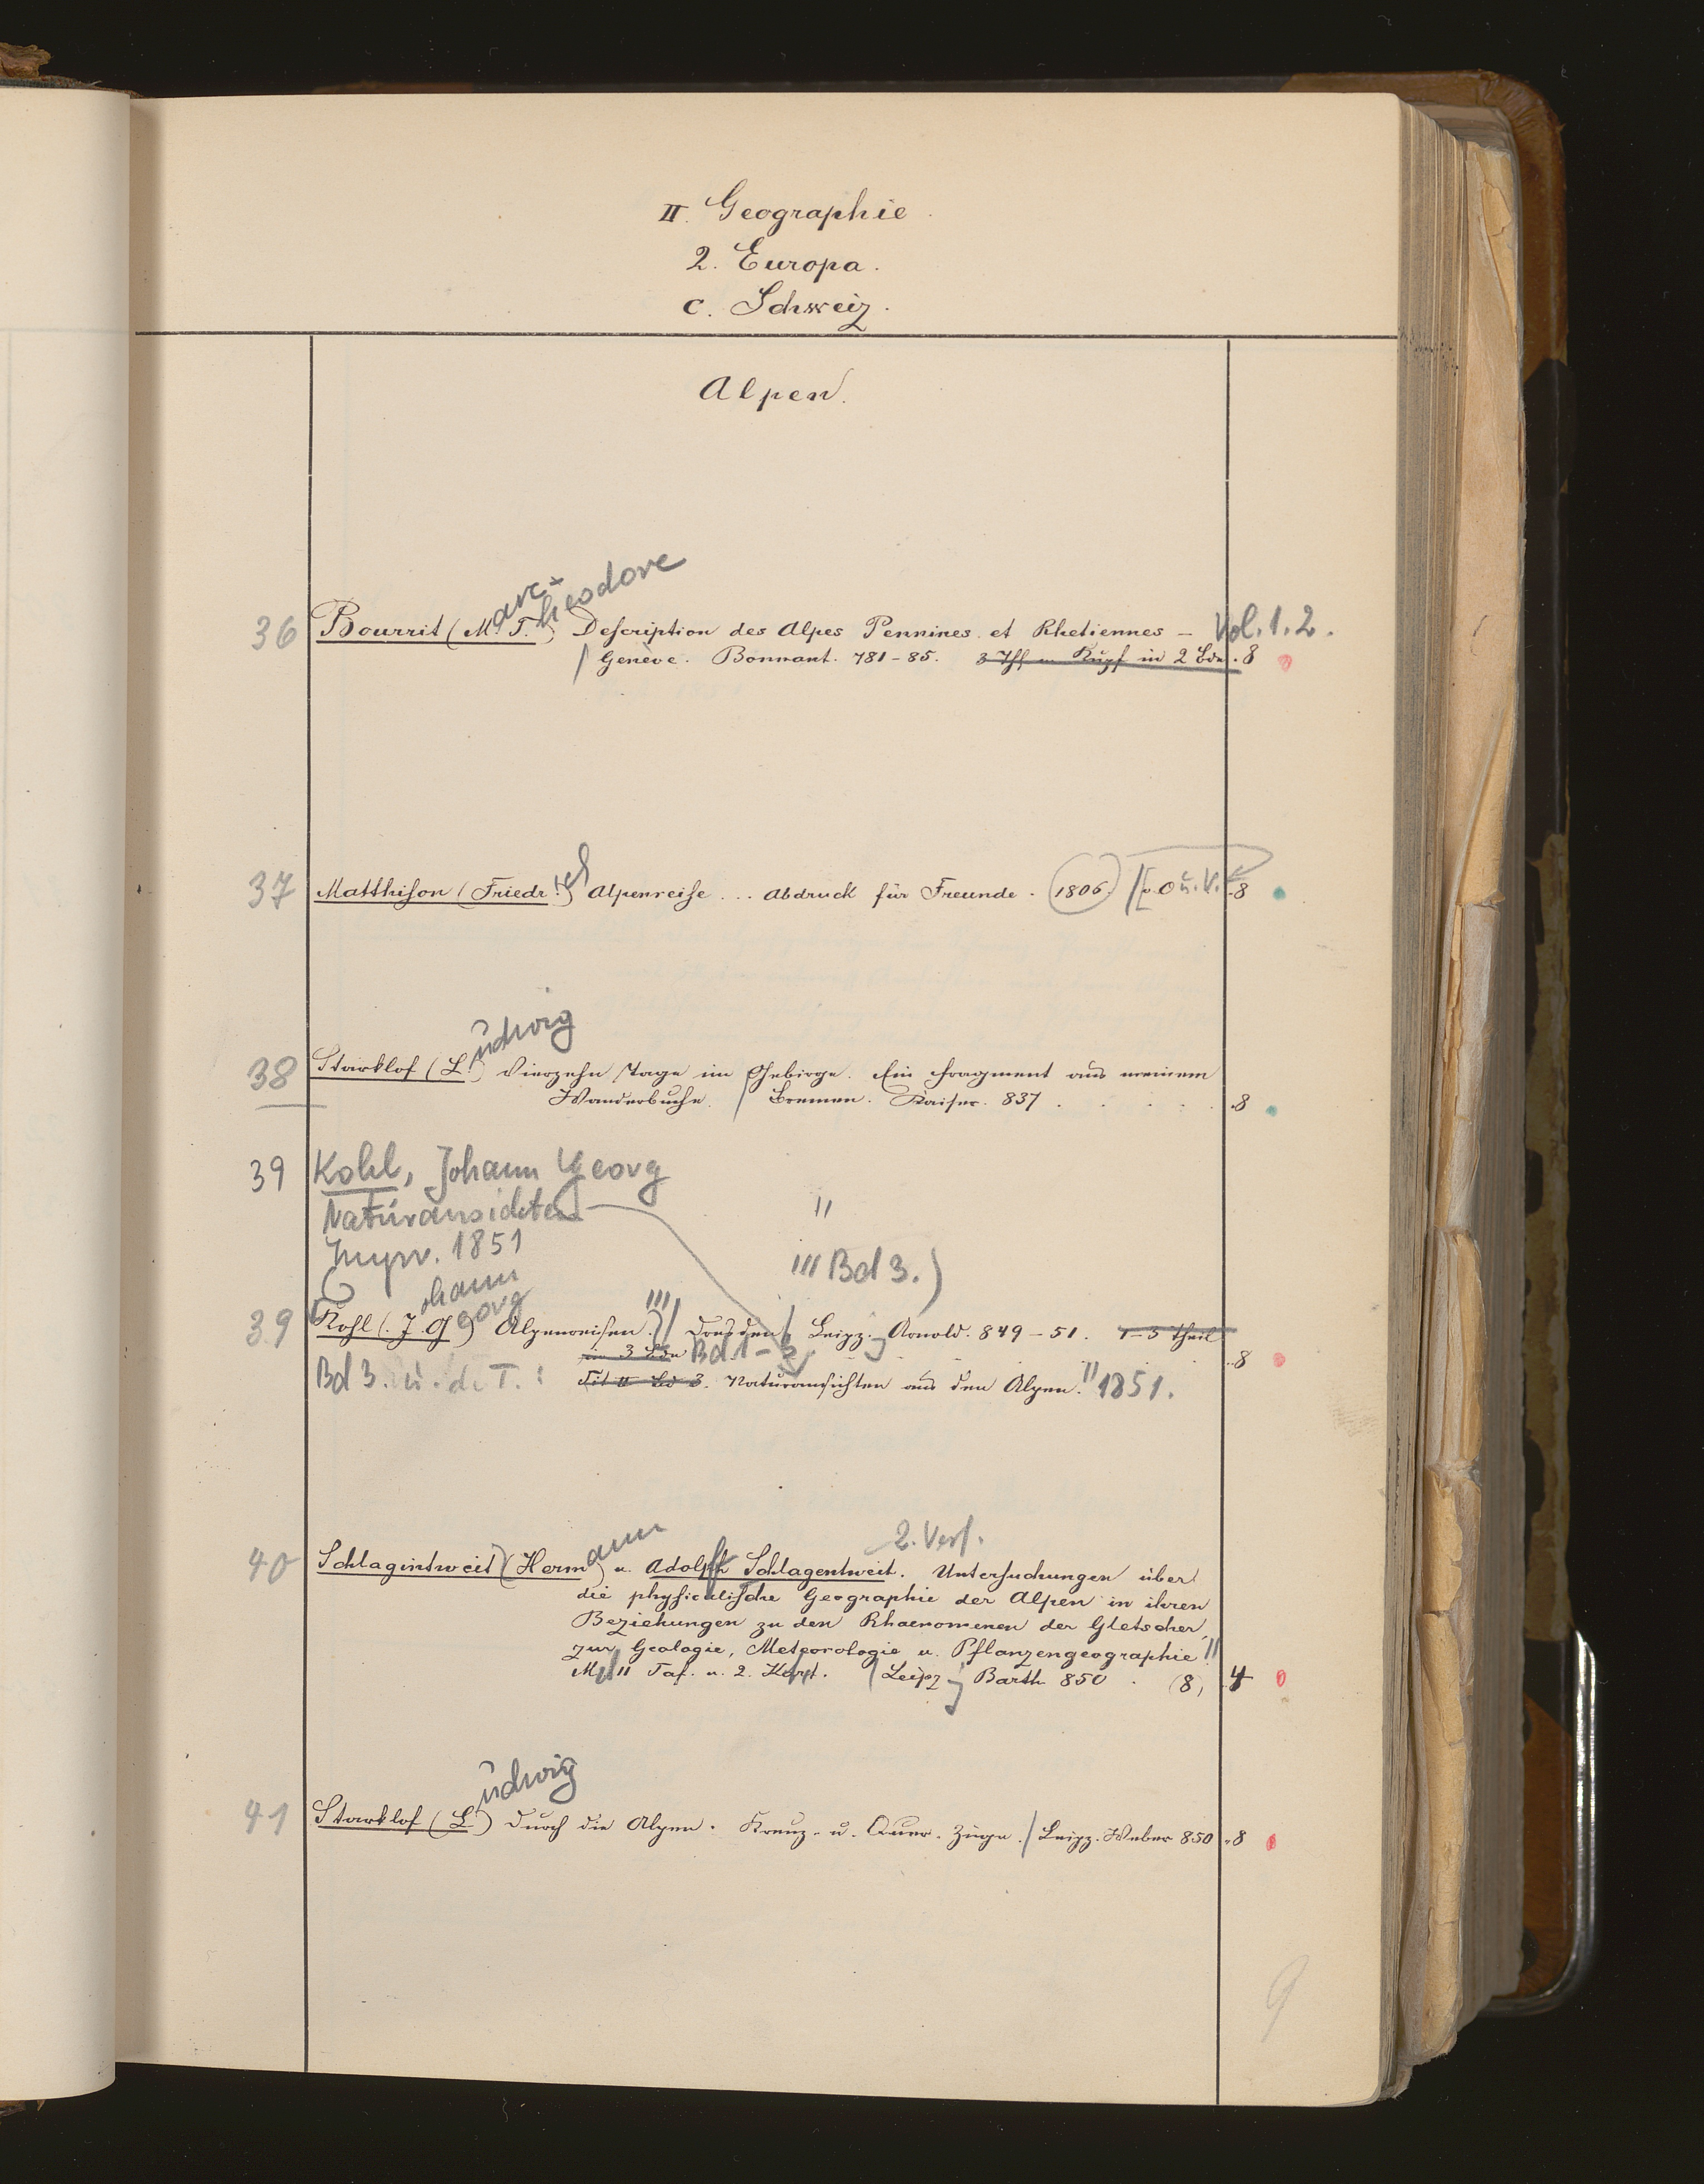 II. Geographie.
2. Europa.
c. Schweiz.
Alpen.
arc-
heodore
36 Bourrit (M. T.) Description des Alpes Pennines et Rhetiennes – Vol. 1. 2.
Genève. Bonnant. 781-85. 3 Thle m Kupf in 2 Bde. 8
37 Matthison (Friedr.) Alpenreise ... Abdruck für Freunde. 1806. [o. O u. V. 8
udwig
38 Starklof (L.) Vierzehn Tage im Gebirge. Ein Fragment aus meinem
Wanderbuche. / Bremen. Kaiser. 837 . . . . 8
39 Kohl, Johann Georg
Naturansichten
Impr. 1851
Bd 3.)
ohann
eorg
39 Kohl (J. G.) Alpenreisen. / Dresden, Leipz. Arnold. 849-51. 1-3 Theil
in 3 Bde Bd 1-3 8
Bd 3. u. d. T.: Tit II Bd 3. Naturansichten aus den Alpen. 1851.
2. Verf.
ann
40 Schlagintweit (Herm) u. Adolph Schlagentweit. Untersuchungen über
die physicalische Geographie der Alpen in ihren
Beziehungen zu den Phaenomenen der Gletscher,
zur Geologie, Meteorologie u. Pflanzengeographie.
M. 11 Taf. u. 2. Kart. / Leipz. Barth 850 . (8) 4
udwig
41 Starklof (L.) Durch die Alpen. Kreuz- u. Quer-Züge. / Leipz. Weber 850 8
9